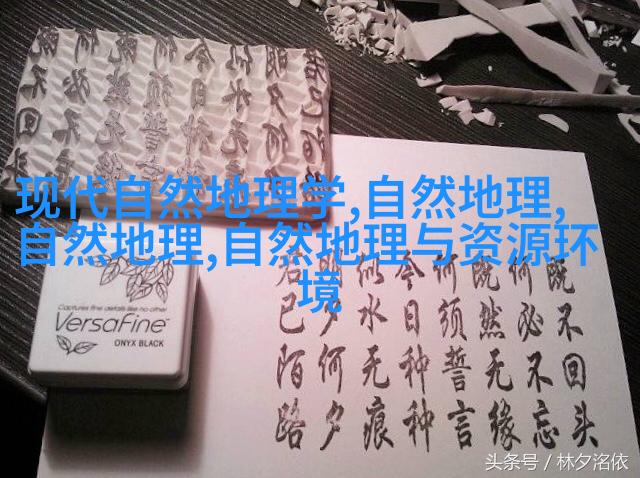 现代自然地理学,自然地理,
自然地理,自然地理与资源环
境
既不回头
何必不忘
既然无缘
何须誓言
今日种种
似水无痕
明夕何夕
君已陌路
Captures fine details like no other
VersaFine™
ONYX BLACK
头条号 / 林夕洺依